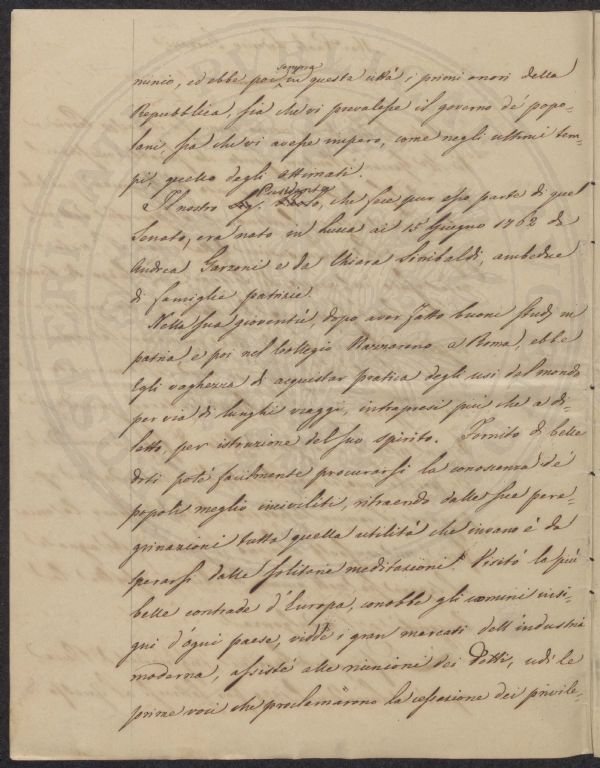 sempre
nunio, ed ebbe poi in questa città i primi onori della
Repubblica, sia che vi prevalesse il governo de' popo-
lani, sia che vi avesse impero, come negli ultimi tem-
pi, quello degli ottimati.
Presidente
Il nostro Sig., che fece pur esso parte di quel
Senato, era nato in Lucca ai 15 Giugno 1762 da
Andrea Garzoni e da Chiara Sinibaldi, ambedue
di famiglie patrizie.
Nella sua gioventù, dopo aver fatto buoni studj in
patria, e poi nel Collegio Nazzareno a Roma, ebbe
Egli vaghezza di acquistar pratica degli usi del mondo
per via di lunghi viaggi, intrapresi più che a di-
letto, per istruzione del suo spirito. Fornito di belle
doti potè facilmente procurarsi la conoscenza de'
popoli meglio inciviliti, ritraendo dalle sue pere-
grinazioni tutta quella utilità che invano è da
sperarsi dalle solitarie meditazioni. Visitò le più
belle contrade d'Europa, conobbe gli uomini insi-
gni d'ogni paese, vidde i gran mercati dell'industria
moderna, assistè alle riunioni dei Dotti, udì le
prime voci che proclamarono la cessazione dei privile-